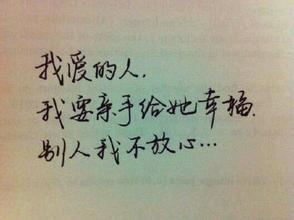 我爱的人,
我要亲手给她幸福.
别人我不放心…